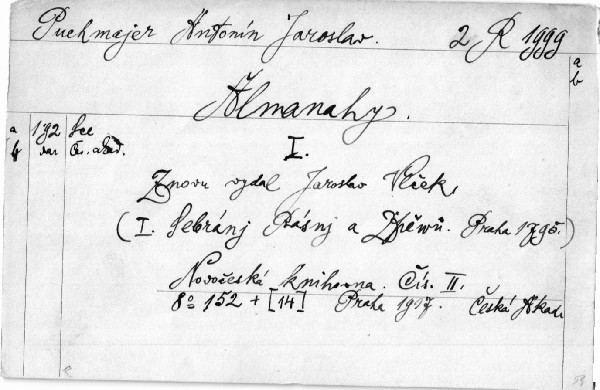 Puchmajer Antonín Jaroslav. 2 R 1999
a
b
Almanahy.
a 192 See
b var Č. akad.
I.
Znovu vydal Jaroslav Vlček,
(I. Sebránj Básnj a Zpěwů. Praha 1795.)
Novočeská knihovna. Čís. II.
8° 152 + [14] Praha 1917. Česká Akad.